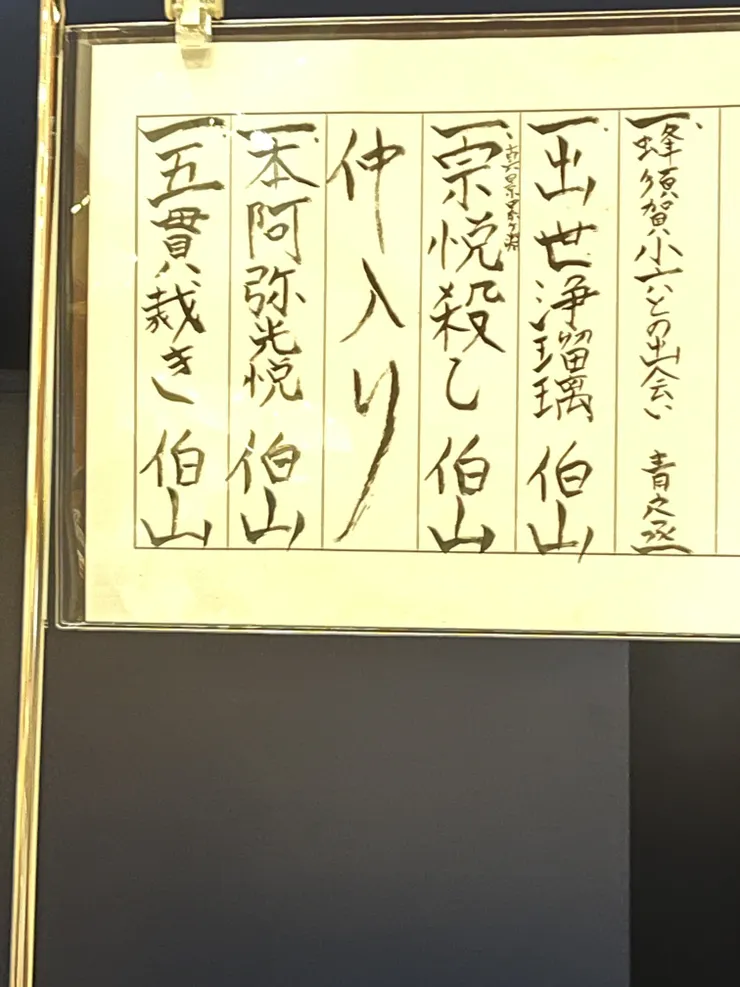 一、蜂須賀小六との出会い 青之丞
一、出世浄瑠璃 伯山
一、真景累ヶ淵 宗悦殺し 伯山
仲入り
一、本阿弥光悦 伯山
一、五貫裁き 伯山